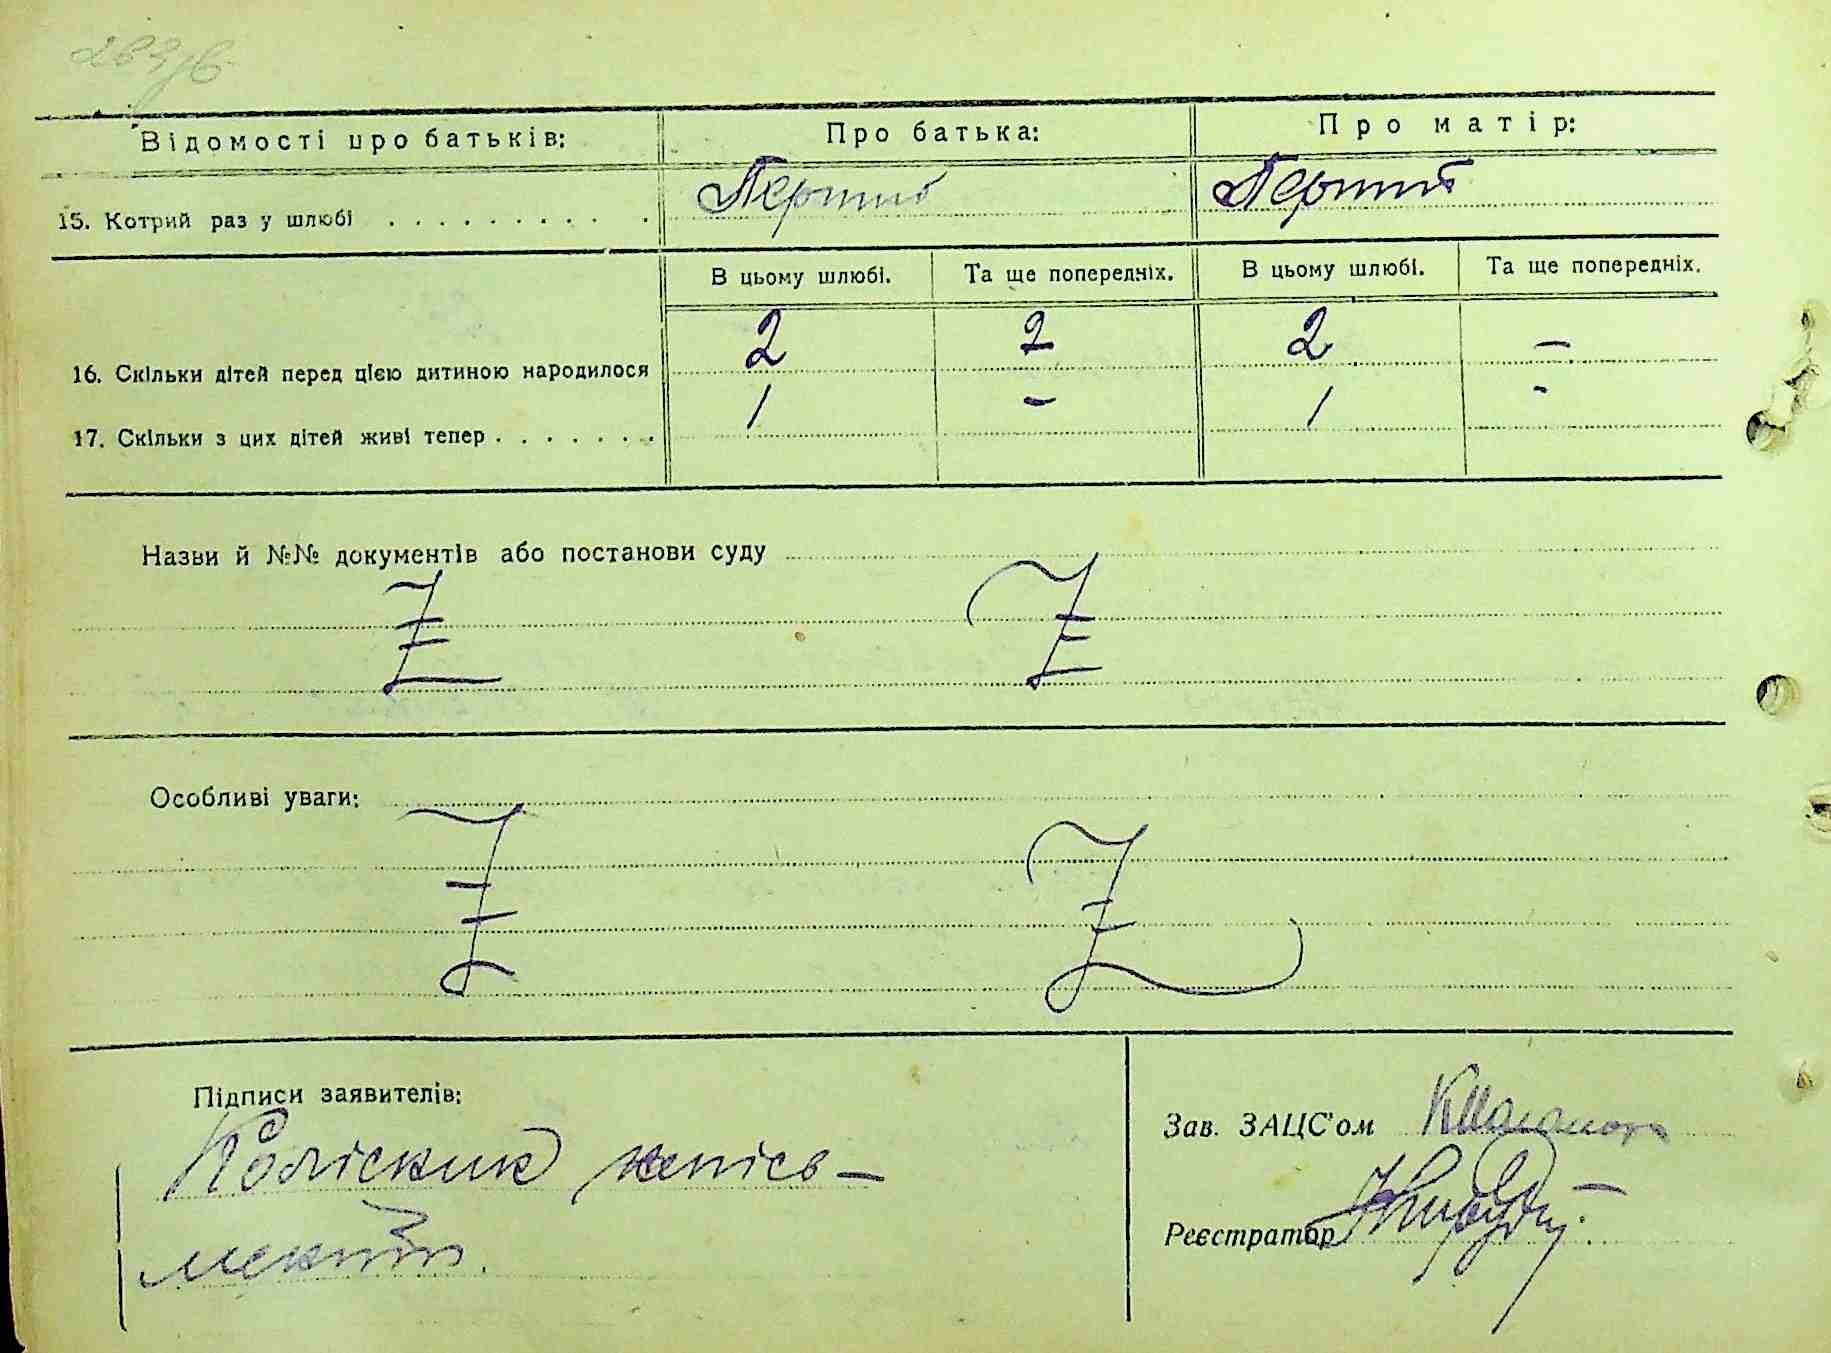 Відомості про батьків: Про батька: Про матір:
15. Котрий раз у шлюбі . . . . . . . . . . Перший Перший
В цьому шлюбі. Та ще попередніх. В цьому шлюбі. Та ще попередніх.
16. Скільки дітей перед цією дитиною народилося 2 2 2 –
17. Скільки з цих дітей живі тепер . . . . . . . 1 – 1 -
Назви й №№ документів або постанови суду
Особливі уваги:
Підписи заявителів:
Зав. ЗАЦС'ом
Реєстратор